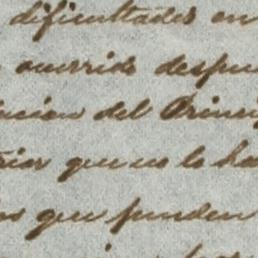 dificultades en
ocurrido despu
acion del Princi
rior que no lo ha
os que pueden